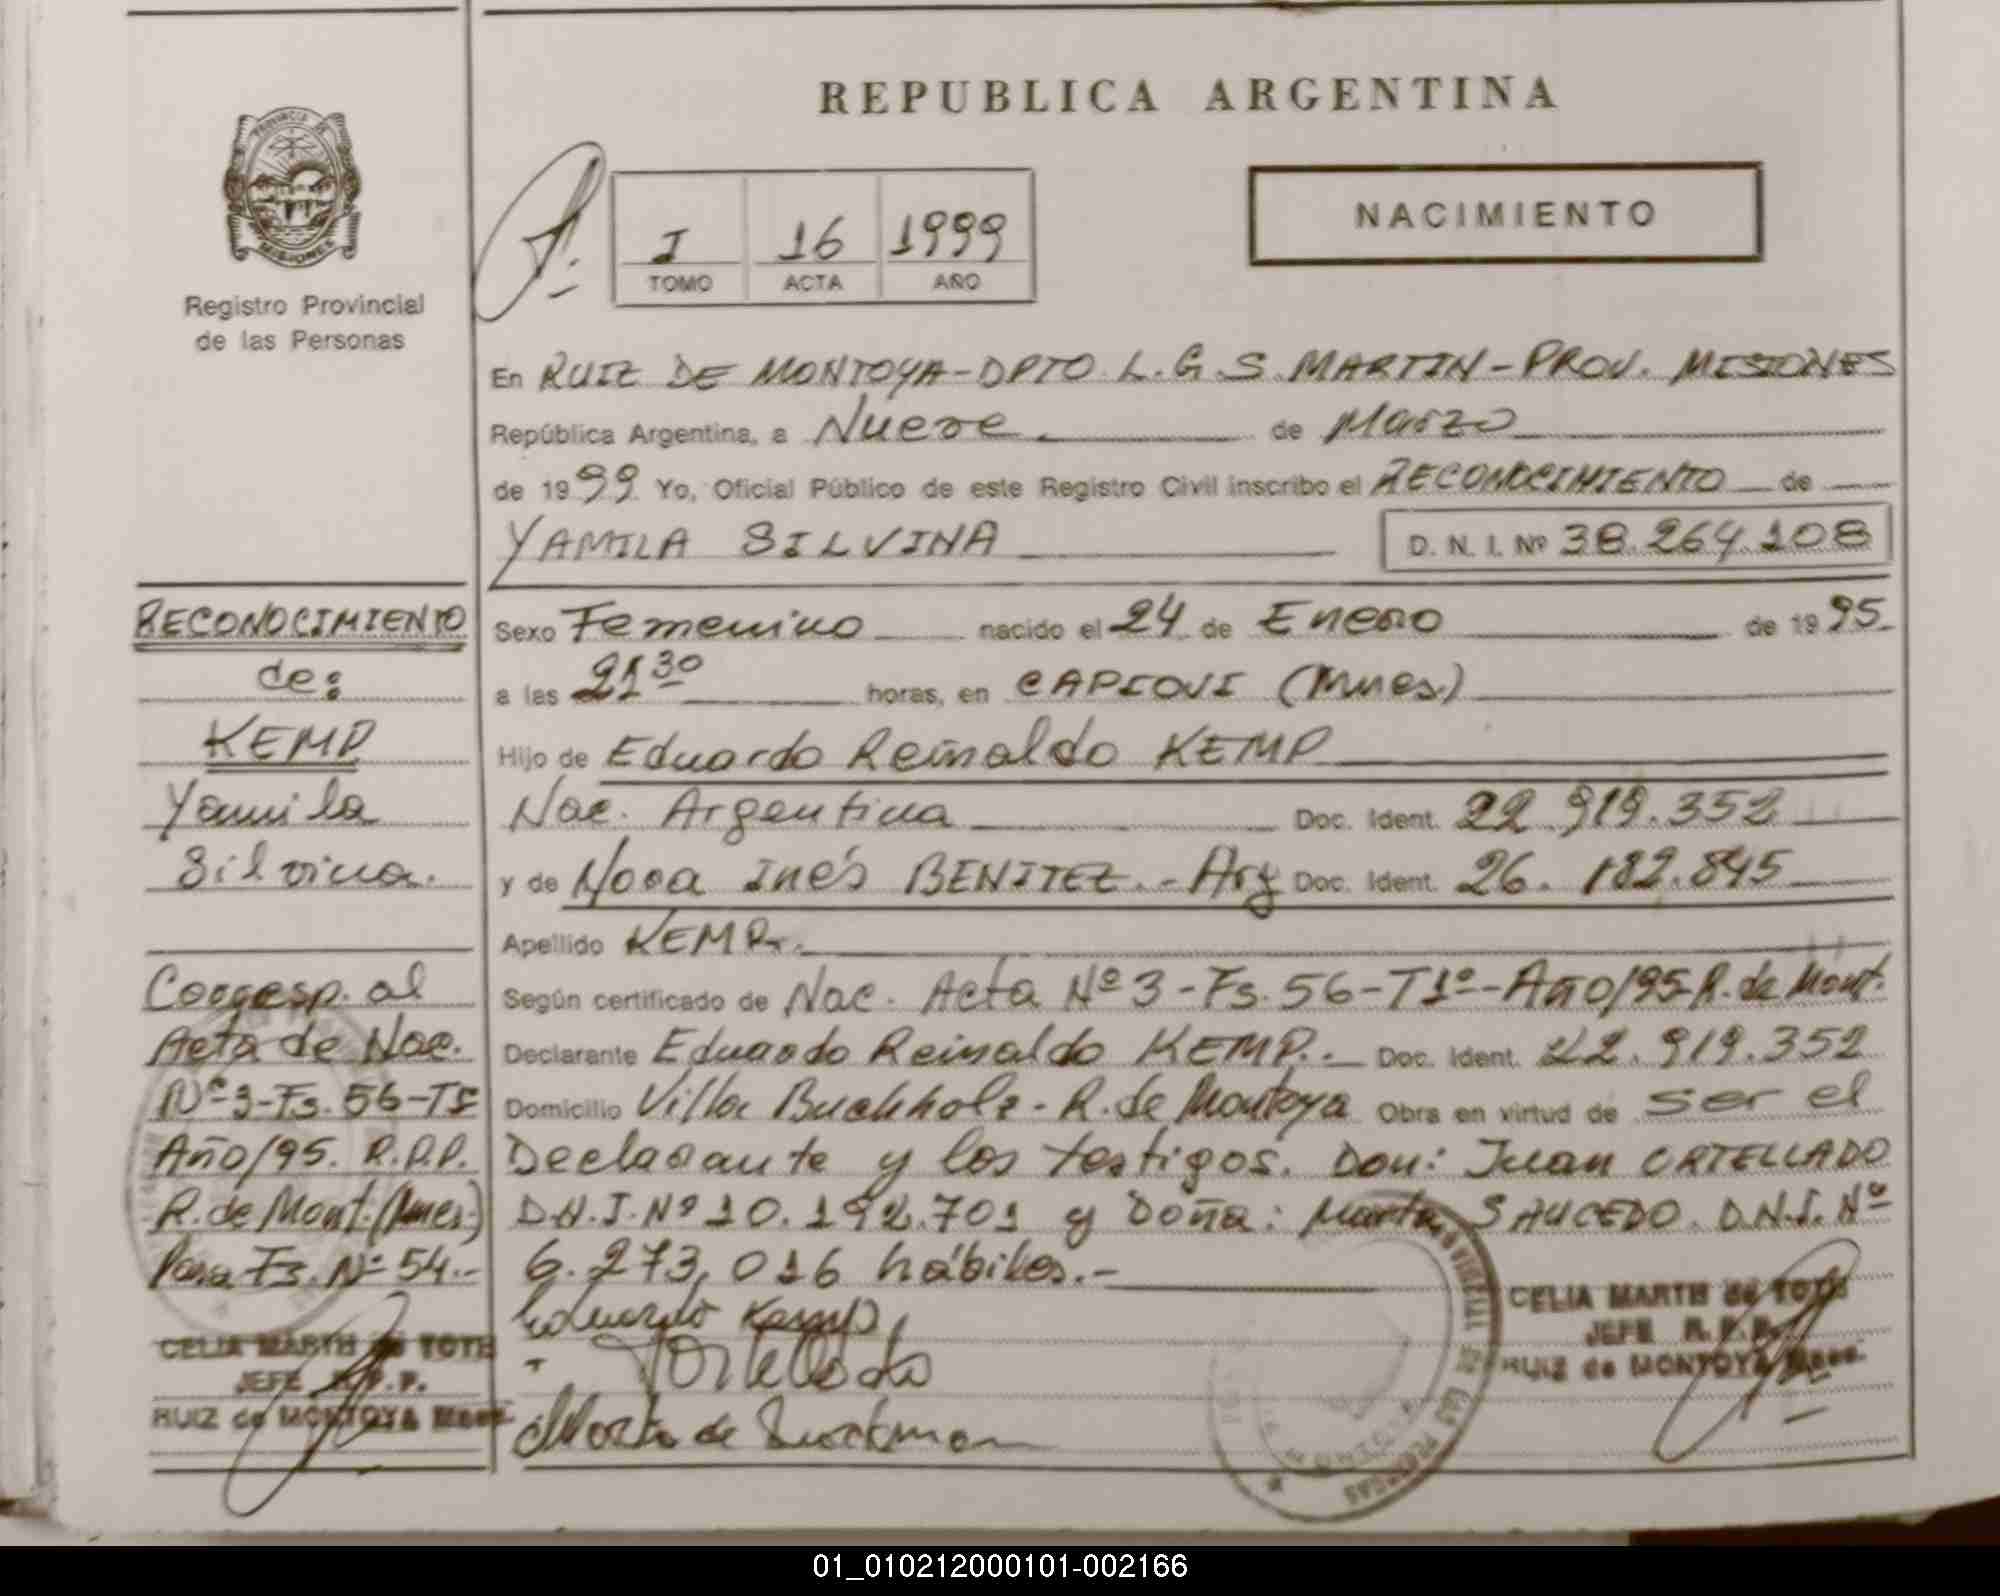 REPUBLICA ARGENTINA
PROVINCIA DE
MISIONES
Registro Provincial
de las Personas
I 16 1999
TOMO ACTA AÑO
NACIMIENTO
En RUIZ DE MONTOYA-DPTO L.G.S. MARTIN-PROV. MISIONES
República Argentina, a Nueve de Marzo
de 1999 Yo, Oficial Público de este Registro Civil inscribo el RECONOCIMIENTO de
YAMILA SILVINA D. N. I. Nº 38.264.108
Sexo Femenino nacido el 24 de Enero de 1995.
a las 21 30 horas, en CAPIOVI (Mnes.)
Hijo de Eduardo Reinaldo KEMP
Nac. Argentina Doc. Ident. 22.919.352
y de Nora Inés BENITEZ.- Arg Doc. Ident. 26.182.845
Apellido KEMP.-
Según certificado de Nac. Acta Nº 3-Fs. 56-T1º-Año/95-R. de Mont.
Declarante Eduardo Reinaldo KEMP.- Doc. Ident. 22.919.352
Domicilio Villa Buchholz-R. de Montoya Obra en virtud de ser el
Declarante y los testigos. Don: Juan ORTELLADO
D.N.I. Nº 10.192.701 y Doña: Marta SAUCEDO. D.N.I. Nº
6.273,016 hábiles.-
Eduardo Kemp
Ortellado
Marta de
CELIA MARTH de TOTH
JEFE R.P.P.
RUIZ de MONTOYA Mnes.
RECONOCIMIENTO
de:
KEMP
Yamila
Silvina.
Corresp. al
Acta de Nac.
Nº 3-Fs. 56-TI
Año/95. R.P.P.
R. de Mont. (Mnes.)
Pasa Fs. Nº 54.-
CELIA MARTH de TOTH
JEFE R.P.P.
RUIZ de MONTOYA Mnes.
01_010212000101-002166